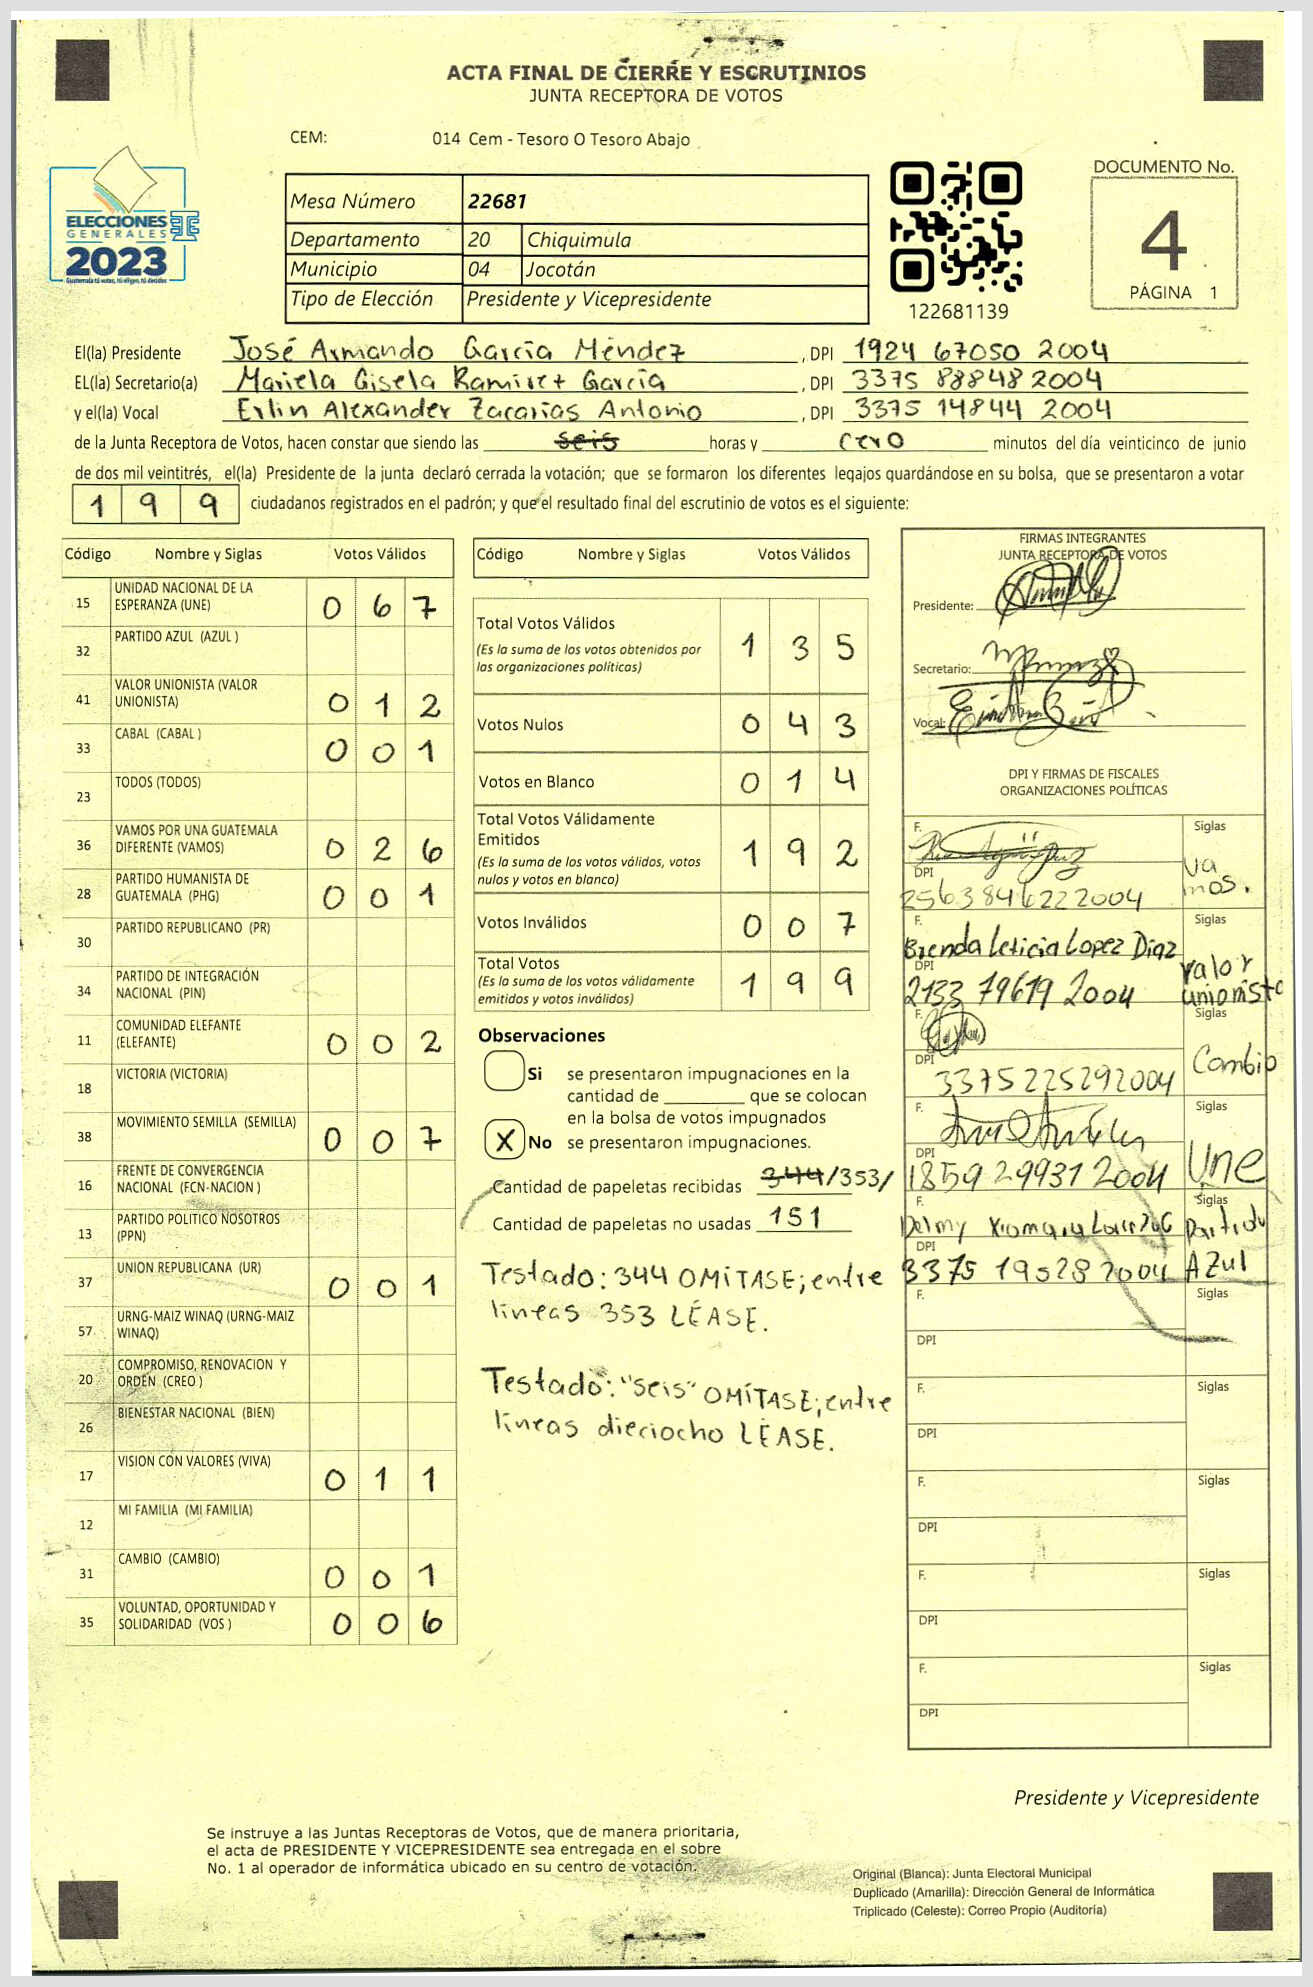 ACTA FINAL DE CIERRE Y ESCRUTINIOS
JUNTA RECEPTORA DE VOTOS
CEM: 014 Cem - Tesoro O Tesoro Abajo
ELECCIONES
GENERALES
2023
Guatemala tú votas, tú eliges, tú decides
Mesa Número 22681
Departamento 20 Chiquimula
Municipio 04 Jocotán
Tipo de Elección Presidente y Vicepresidente
122681139
DOCUMENTO No.
4
PÁGINA 1
El(la) Presidente José Armando García Méndez , DPI 1924 67050 2004
EL(la) Secretario(a) Mariela Gisela Ramirez García , DPI 3375 88848 2004
y el(la) Vocal Erlin Alexander Zacarías Antonio , DPI 3375 14844 2004
de la Junta Receptora de Votos, hacen constar que siendo las seis horas y cero minutos del día veinticinco de junio
de dos mil veintitrés, el(la) Presidente de la junta declaró cerrada la votación; que se formaron los diferentes legajos guardándose en su bolsa, que se presentaron a votar
199 ciudadanos registrados en el padrón; y que el resultado final del escrutinio de votos es el siguiente:
Código Nombre y Siglas Votos Válidos
15 UNIDAD NACIONAL DE LA ESPERANZA (UNE) 067
32 PARTIDO AZUL (AZUL )
41 VALOR UNIONISTA (VALOR UNIONISTA) 012
33 CABAL (CABAL ) 001
23 TODOS (TODOS)
36 VAMOS POR UNA GUATEMALA DIFERENTE (VAMOS) 026
28 PARTIDO HUMANISTA DE GUATEMALA (PHG) 001
30 PARTIDO REPUBLICANO (PR)
34 PARTIDO DE INTEGRACIÓN NACIONAL (PIN)
11 COMUNIDAD ELEFANTE (ELEFANTE) 002
18 VICTORIA (VICTORIA)
38 MOVIMIENTO SEMILLA (SEMILLA) 007
16 FRENTE DE CONVERGENCIA NACIONAL (FCN-NACION )
13 PARTIDO POLITICO NOSOTROS (PPN)
37 UNION REPUBLICANA (UR) 001
57 URNG-MAIZ WINAQ (URNG-MAIZ WINAQ)
20 COMPROMISO, RENOVACION Y ORDEN (CREO )
26 BIENESTAR NACIONAL (BIEN)
17 VISION CON VALORES (VIVA) 011
12 MI FAMILIA (MI FAMILIA)
31 CAMBIO (CAMBIO) 001
35 VOLUNTAD, OPORTUNIDAD Y SOLIDARIDAD (VOS ) 006
Código Nombre y Siglas Votos Válidos
Total Votos Válidos 135
(Es la suma de los votos obtenidos por
las organizaciones políticas)
Votos Nulos 043
Votos en Blanco 014
Total Votos Válidamente
Emitidos 192
(Es la suma de los votos válidos, votos
nulos y votos en blanco)
Votos Inválidos 007
Total Votos 199
(Es la suma de los votos válidamente
emitidos y votos inválidos)
Observaciones
Si se presentaron impugnaciones en la
cantidad de ________ que se colocan
en la bolsa de votos impugnados
X No se presentaron impugnaciones.
Cantidad de papeletas recibidas 344/353/
Cantidad de papeletas no usadas 151
Testado: 344 OMITASE; entre
lineas 353 LÉASE.
Testado: "seis" OMÍTASE; entre
lineas dieciocho LÉASE.
FIRMAS INTEGRANTES
JUNTA RECEPTORA DE VOTOS
Presidente:
Secretario:
Vocal:
DPI Y FIRMAS DE FISCALES
ORGANIZACIONES POLÍTICAS
F. Siglas
DPI Vamos.
2563846222004
F. Siglas
Brenda Leticia Lopez Diaz
DPI valor unionista
2133 79619 2004
F. Siglas
DPI Cambio
3375225292004
F. Siglas
DPI Une
1859 29931 2004
F. Siglas
Delmy Xiomara Partido
DPI AZul
3375 19528 2004
F. Siglas
DPI
F. Siglas
DPI
F. Siglas
DPI
F. Siglas
DPI
F. Siglas
DPI
Presidente y Vicepresidente
Se instruye a las Juntas Receptoras de Votos, que de manera prioritaria,
el acta de PRESIDENTE Y VICEPRESIDENTE sea entregada en el sobre
No. 1 al operador de informática ubicado en su centro de votación.
Original (Blanca): Junta Electoral Municipal
Duplicado (Amarilla): Dirección General de Informática
Triplicado (Celeste): Correo Propio (Auditoría)